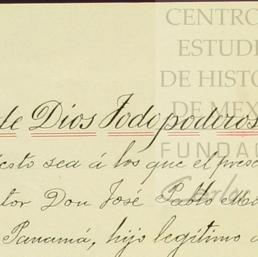 CENTRO
ESTUDI
DE HISTO
DE MEX
FUNDAC
de Dios Todopoderos
esto sea á los que el prese
tor Don José Pablo
Panamá, hijo legítimo d